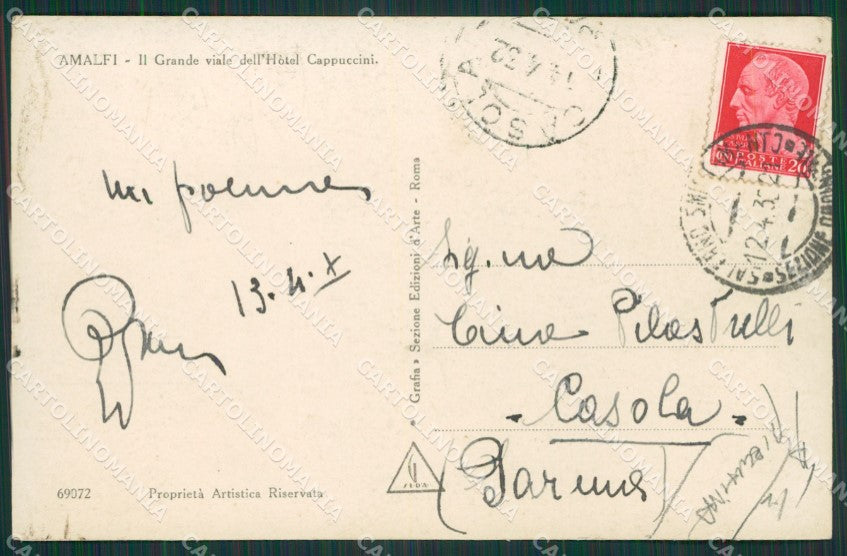 AMALFI - Il Grande viale dell'Hôtel Cappuccini.
un poema
13.4.X
« Grafia » Sezione Edizioni d'Arte - Roma
Sig.na
Cina Pilastrelli
- Casola -
(Parma)
69072 Proprietà Artistica Riservata
S.E.D.A.
POSTE
ITALIANE
20
CASOLA
14.4.32
SALERNO
SEZIONE
12.4.3
CARTOLINOMANIA